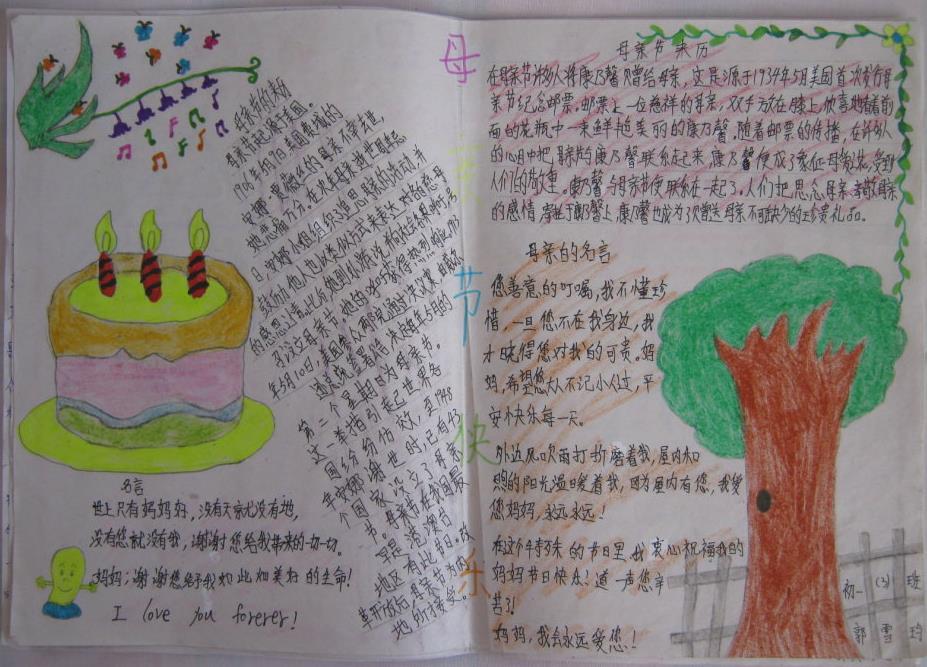 母亲节快乐
母亲节的来历
母亲节起源于美国。
1906年5月9日,美国费城的
安娜·贾薇丝的母亲不幸去世,
她悲痛万分。在次年母亲逝世周年忌
日,安娜小姐组织了追思母亲的活动,并
鼓励他人也以类似方式来表达对各自慈母
的感恩之情。此后,她到处
5月10日,美国
第二个星期日为母亲节。
这一举措引起世界各
国纷纷仿效,至1948
年安娜谢世时,已有43
个国家设立了母亲
节。
早是港澳台
地区有此节日。改
革开放后,母亲节为内
地所接受。
名言
世上只有妈妈好,没有天哪有地,
没有您就没有我,谢谢您给我带来的一切一切。
妈妈:谢谢您给予我如此如美好的生命!
I love you forerer!
母亲节来历
在母亲节许多人将康乃馨赠给母亲,这是源于1934年5月美国首次发行母
亲节纪念邮票。邮票上一位慈祥的母亲,双手放在膝上,欣喜地看着前
面的花瓶中一束鲜艳美丽的康乃馨。随着邮票的传播,在许多人
的心目中把母亲节与康乃馨联系起来,康乃馨便成了象征母爱之花,受到
人们的敬重。康乃馨与母亲节便联系在一起了。人们把思念母亲、孝敬母亲
的感情,寄托于康乃馨上,康乃馨也成为了赠送母亲不可缺少的珍贵礼品。
母亲的名言
您善意的叮嘱,我不懂珍
惜,一旦您不在我身边,我
才晓得您对我的可贵。妈
妈,希望您大人不记小人过,平
安快乐每一天。
外边风吹雨打折磨着我,屋内和
煦的阳光温暖着我,因为屋内有您,我爱
您妈妈,永远永远!
在这个特殊的节日里,我衷心祝福我的
妈妈节日快乐!道一声您辛
苦了!
妈妈,我会永远爱您!
初一(3)班
郭雪